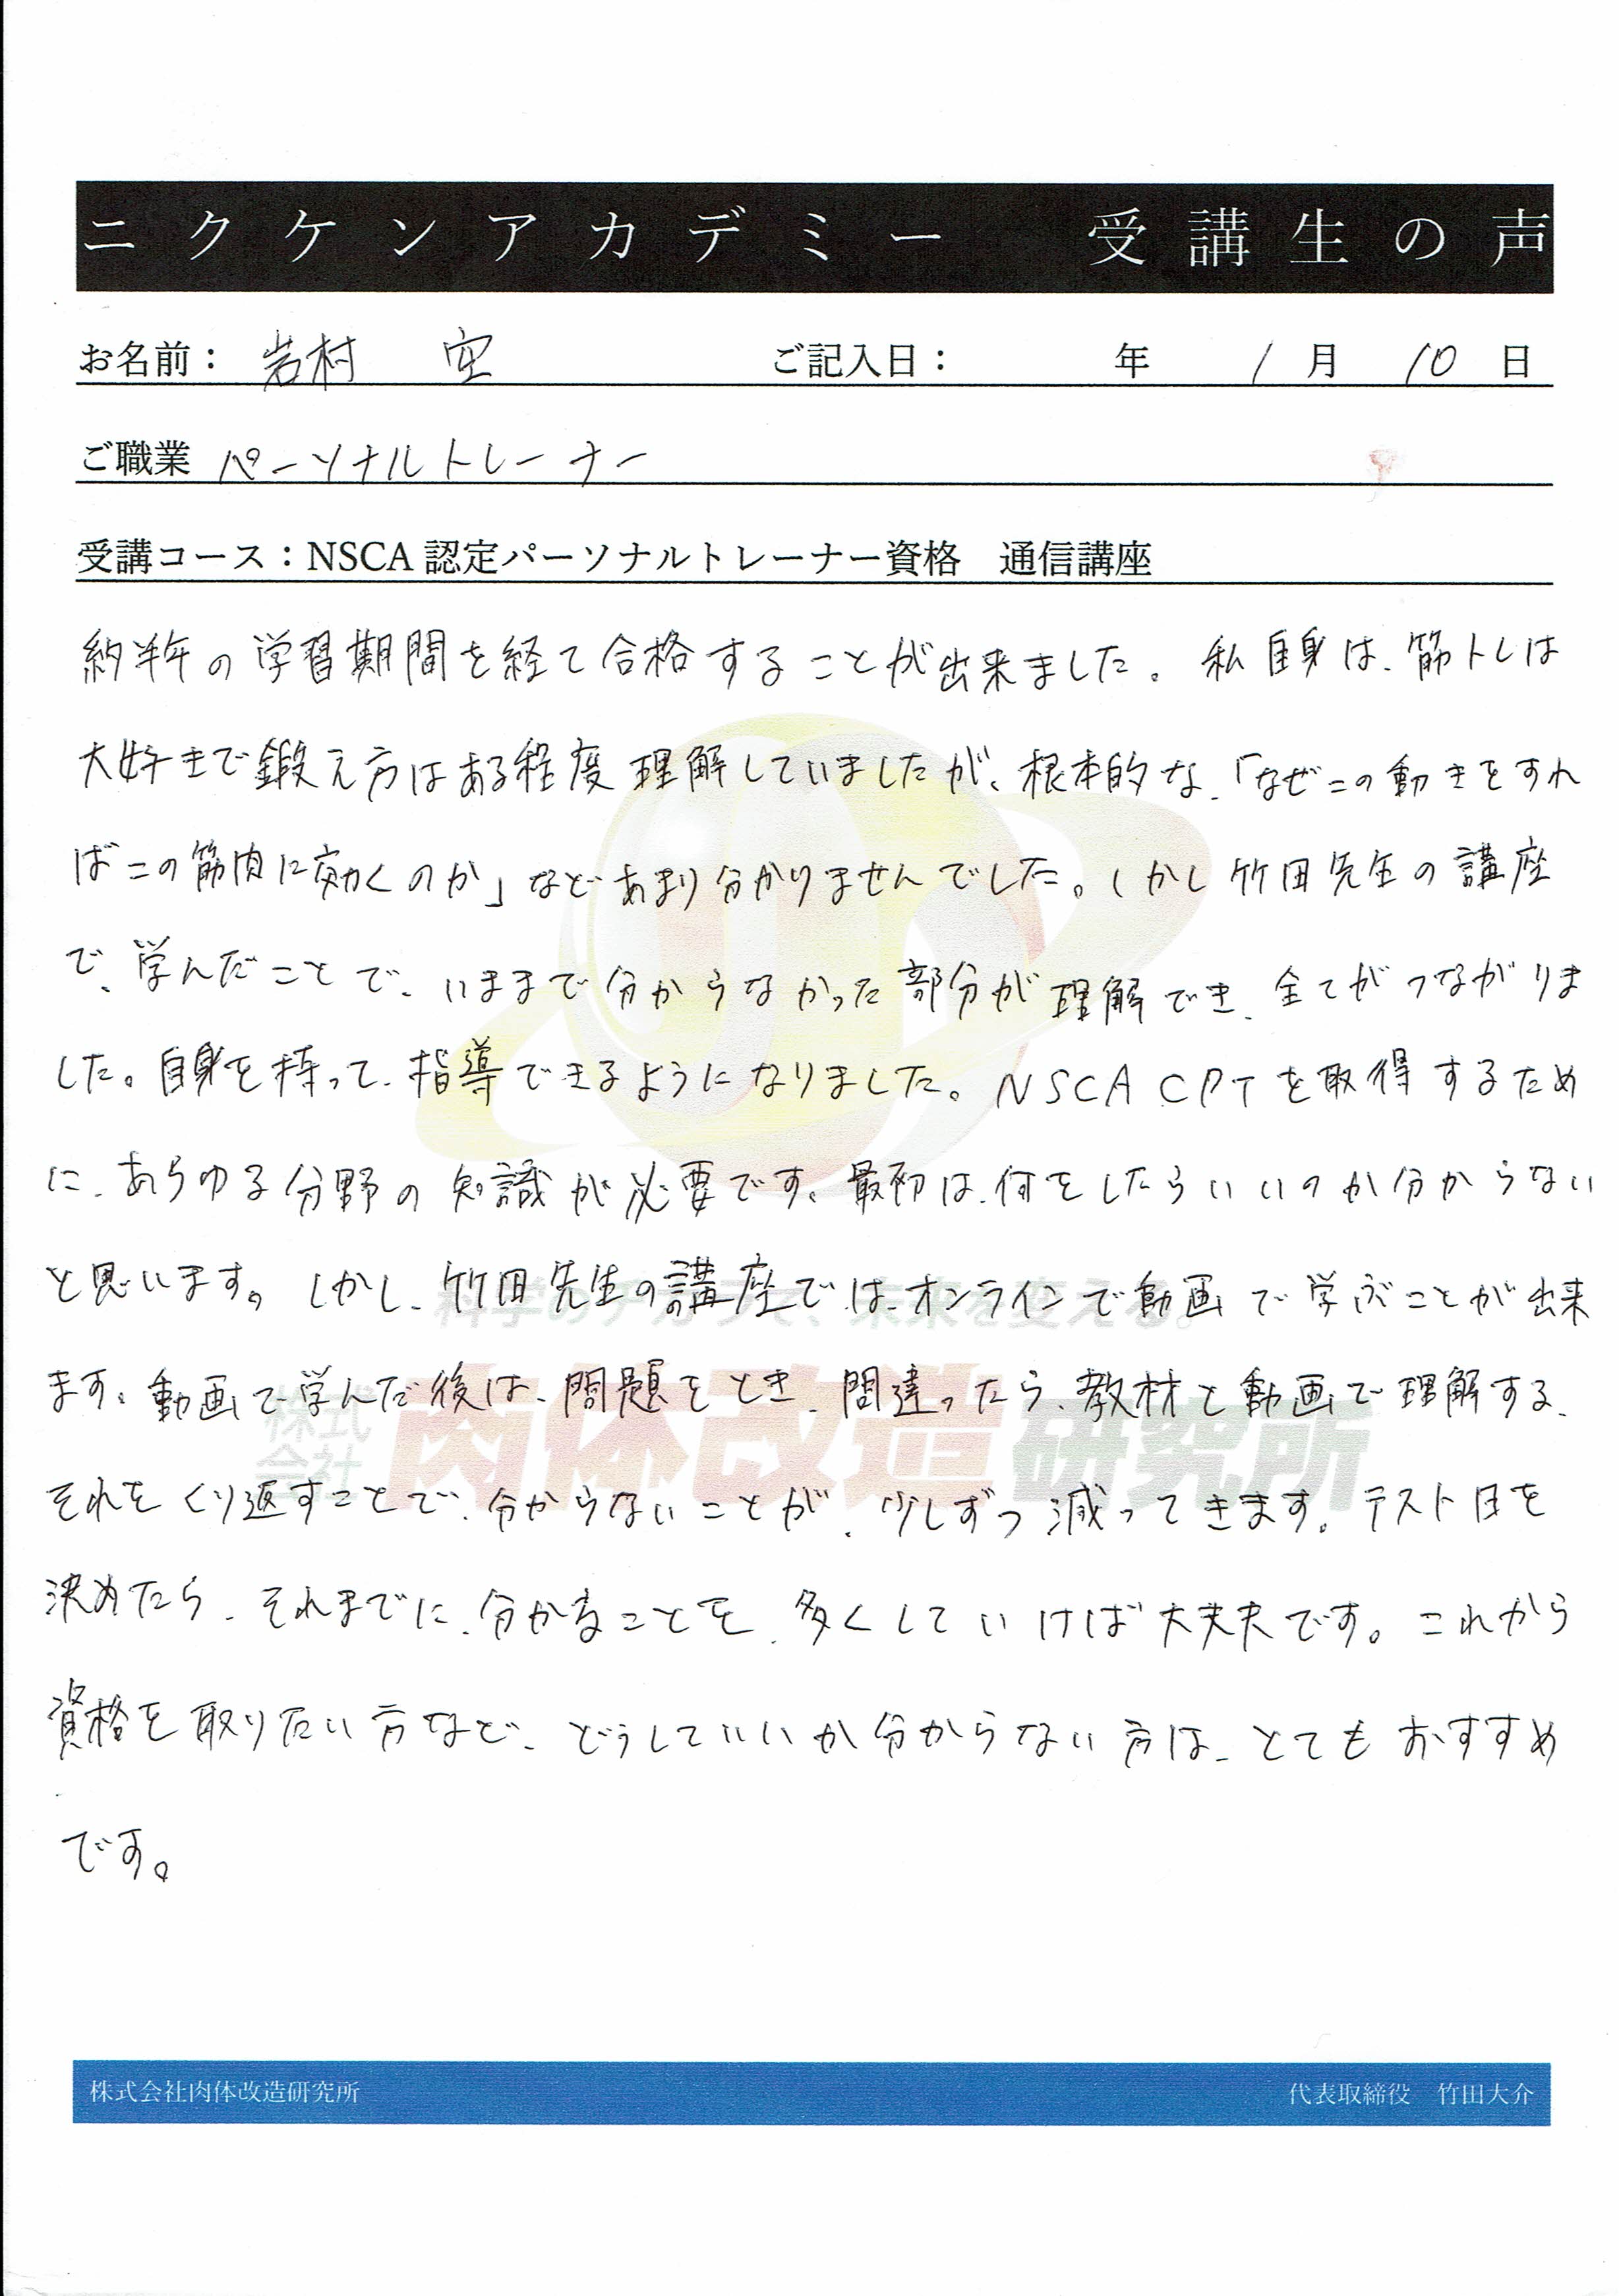 ニクケンアカデミー 受講生の声
お名前： 岩村 空 ご記入日： 年 1月 10日
ご職業 パーソナルトレーナー
受講コース：NSCA 認定パーソナルトレーナー資格 通信講座
約半年の学習期間を経て合格することが出来ました。私自身は、筋トレは
大好きで鍛え方はある程度理解していましたが、根本的な、「なぜこの動きをすれ
ばこの筋肉に効くのか」などあまり分かりませんでした。しかし竹田先生の講座
で、学んだことで、いままで分からなかった部分が理解でき、全てがつながりま
した。自身を持って、指導できるようになりました。NSCA CPTを取得するため
に、あらゆる分野の知識が必要です。最初は、何をしたらいいのか分からない
と思います。しかし、竹田先生の講座では、オンラインで動画で学ぶことが出来
ます。動画で学んだ後は、問題をとき、間違ったら、教材と動画で理解する、
科学のチカラで、未来を変える。
株式会社 肉体改造研究所
それをくり返すことで、分からないことが、少しずつ減ってきます。テスト日を
決めたら、それまでに、分かることを、多くしていけば大丈夫です。これから
資格を取りたい方など、どうしていいか分からない方は、とてもおすすめ
です。
株式会社肉体改造研究所 代表取締役 竹田大介